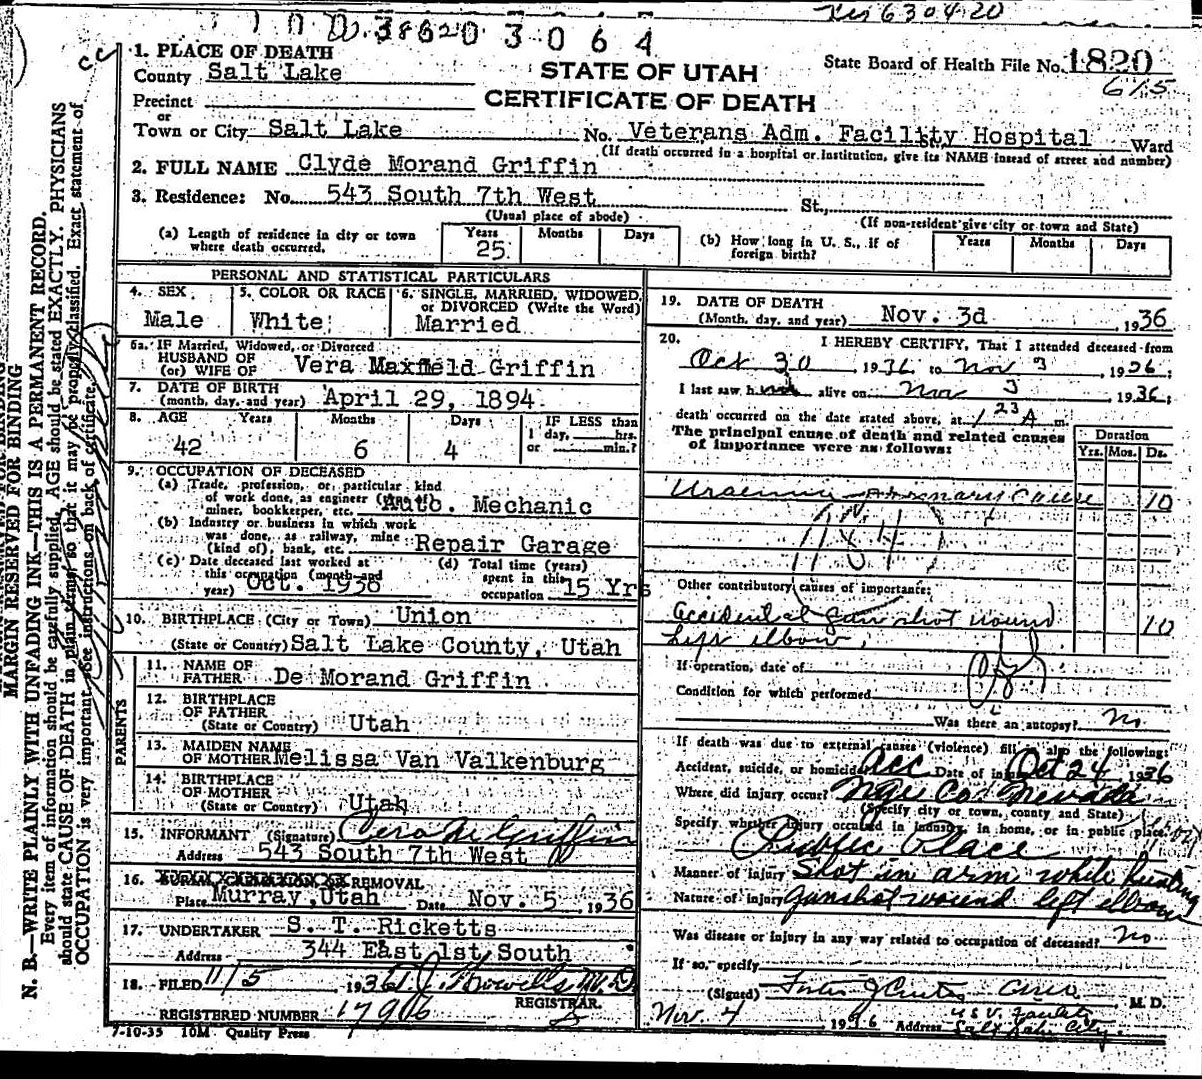 D.38620 3064
630420
1. PLACE OF DEATH
County Salt Lake
STATE OF UTAH
State Board of Health File No. 1820
615
CERTIFICATE OF DEATH
Precinct
or
Town or City Salt Lake No. Veterans Adm. Facility Hospital Ward
(If death occurred in a hospital or institution, give its NAME instead of street and number)
2. FULL NAME Clyde Morand Griffin
3. Residence: No. 543 South 7th West St.,
(Usual place of abode)
(If non-resident give city or town and State)
(a) Length of residence in city or town where death occurred. Years 25 Months Days
(b) How long in U. S., if of foreign birth? Years Months Days
PERSONAL AND STATISTICAL PARTICULARS
4. SEX Male
5. COLOR OR RACE White
6. SINGLE, MARRIED, WIDOWED, or DIVORCED (Write the Word) Married
6a. IF Married, Widowed, or Divorced
HUSBAND OF
(or) WIFE OF Vera Maxfield Griffin
7. DATE OF BIRTH
(month, day, and year) April 29, 1894
8. AGE Years Months Days IF LESS than
1 day, hrs.
or min.?
42 6 4
9. OCCUPATION OF DECEASED
(a) Trade, profession, or particular kind
of work done, as engineer (type of)
miner, bookkeeper, etc. Auto. Mechanic
(b) Industry or business in which work
was done, as railway, mine
(kind of), bank, etc. Repair Garage
(c) Date deceased last worked at
this occupation (month and
year) Oct. 1936
(d) Total time (years)
spent in this
occupation 15 Yrs
10. BIRTHPLACE (City or Town) Union
(State or Country) Salt Lake County, Utah
PARENTS
11. NAME OF
FATHER De Morand Griffin
12. BIRTHPLACE
OF FATHER
(State or Country) Utah
13. MAIDEN NAME
OF MOTHER Melissa Van Valkenburg
14. BIRTHPLACE
OF MOTHER
(State or Country) Utah
15. INFORMANT (Signature) Vera M Griffin
Address 543 South 7th West
16. REMOVAL
Place Murray, Utah Date Nov. 5, 1936
17. UNDERTAKER S. T. Ricketts
Address 344 East 1st South
18. FILED 11/5, 1936 M.D.
REGISTRAR.
REGISTERED NUMBER 17906
7-10-35 10M Quality Press
19. DATE OF DEATH
(Month, day, and year) Nov. 3d, 1936
20. I HEREBY CERTIFY, That I attended deceased from
Oct 30, 1936 to Nov 3, 1936;
I last saw him alive on Nov 3, 1936;
death occurred on the date stated above, at 1 23 A m.
The principal cause of death and related causes
of importance were as follows:
Duration
Yrs. Mos. Ds.
Uraemia - primary cause 10
Other contributory causes of importance:
Accidental Gun shot wound 10
Left elbow
If operation, date of
Condition for which performed
Was there an autopsy? No
If death was due to external causes (violence) fill in also the following:
Accident, suicide, or homicide? Acc Date of injury Oct 24 1936
Where did injury occur? Nye Co. Nevada
(Specify city or town, county and State)
Specify whether injury occured in industry, in home, or in public place.
Public Place
Manner of injury Shot in arm while hunting
Nature of injury Gunshot wound left elbow
Was disease or injury in any way related to occupation of deceased? No
If so, specify
(Signed) M. D.
Nov. 4, 1936 Address U S V. Facility
Salt Lake City
MARGIN RESERVED FOR BINDING
N. B.—WRITE PLAINLY WITH UNFADING INK—THIS IS A PERMANENT RECORD.
Every item of information should be carefully supplied. AGE should be stated EXACTLY. PHYSICIANS
should state CAUSE OF DEATH in plain terms, so that it may be properly classified. Exact statement of
OCCUPATION is very important. See instructions on back of certificate.